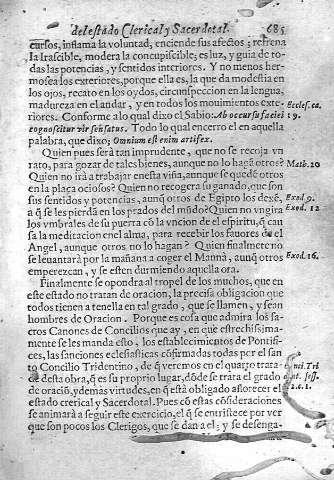 del estado Clerical y Sacerdotal. 685
cursos, inflama la voluntad, enciende sus afectos; refrena
la Irascible, modera la concupiscible; es luz, y guia de to-
das las potencias, y sentidos interiores. Y no menos her-
mosea los exteriores, porque ella es, la que da modestia en
los ojos, recato en los oydos, circunspeccion en la lengua,
madureza en el andar, y en todos los mouimientos exte-
riores. Conforme a lo qual dixo el Sabio: Ab occursu faciei
cognoscitur vir sensatus. Todo lo qual encerro el en aquella
palabra, que dixo; Omnium est enim artifex.
Quien pues serà tan imprudente, que no se recoja vn
rato, para gozar de tales bienes, aunque no lo hagã otros?
Quien no irà a trabajar en esta viña, aunque se quedẽ otros
en la plaça ociosos? Quien no recogera su ganado, que son
sus sentidos y potencias, aunq̃ otros de Egipto los dexẽ,
a q̃ se les pierdã en los prados del mũdo? Quien no vngira
los vmbrales de su puerta cõ la vncion de el espiritu, q̃ cau
sa la meditacion en el alma, para recebir los fauores de el
Angel, aunque otros no lo hagan? Quien finalmente no
se leuantarà por la mañana a coger el Mannà, aunq̃ otros
emperezcan, y se esten durmiendo aquella ora.
Finalmente se opondra al tropel de los muchos, que en
este estado no tratan de oracion, la precisa obligacion que
todos tienen a tenella en tal grado, que se llamen, y sean
hombres de Oracion. Porque es cosa que admira los sa-
cros Canones de Concilios que ay, en que estrechissima-
mente se les manda esto, los establecimientos de Pontifi-
ces, las sanciones eclesiasticas cõfirmadas todas por el san
to Concilio Tridentino, de q̃ veremos en el quarto trata-
de desta obra, q̃ es su proprio lugar, dõde se trata el grado
de oraciõ, y demas virtudes, en q̃ està obligado a florecer el
estado clerical y Sacerdotal. Pues cõ estas cõsideraciones
se animarà a seguir este exercicio, el q̃ se entristece por ver
que son pocos los Clerigos, que se dan a el: y se desenga-
Eccles. ca.
19.
Math. 20
Exod. 9.
Exod. 12
Exod. 16.